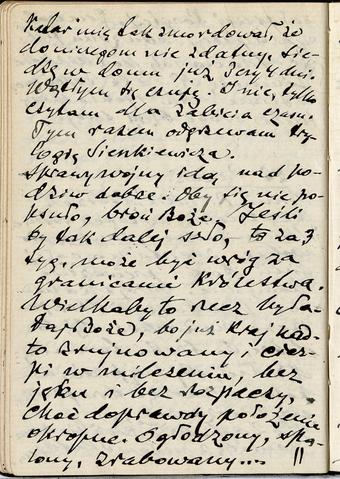 Katar mię tak zmordował, że
do niczego nie zdatny. Sie-
dzę w domu już 3 czy 4 dni.
Wątłym się czuję. I nic, tylko
czytam dla zabicia czasu.
Tym razem odgrzewam try-
logię Sienkiewicza.
Sprawy wojny idą nad po-
dziw dobrze. Oby się nie po-
psuło, broń Boże. Jeśli
by tak dalej szło, to za 3
tyg. może być wróg za
granicami Królestwa.
Wielka by to rzecz była.
Daj Boże, bo już kraj nad-
to zrujnowany i cier-
pi w milczeniu, bez
jęku i bez rozpaczy,
choć doprawdy położenie
okropne. Ogłodzony, spa-
lony, zrabowany...